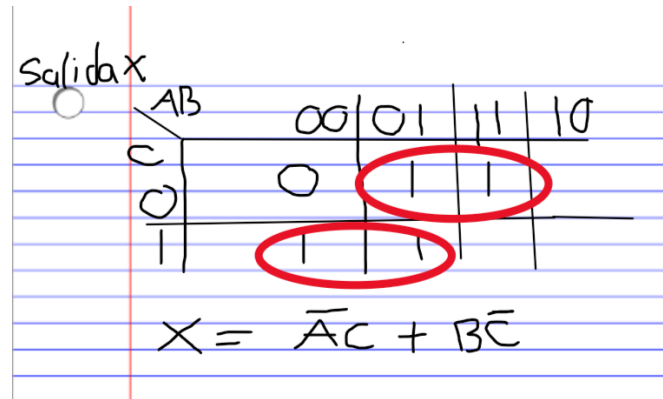 Salida X
AB 00 01 11 10
C
0 0 1 1
1 1 1
X = A̅C + BC̅